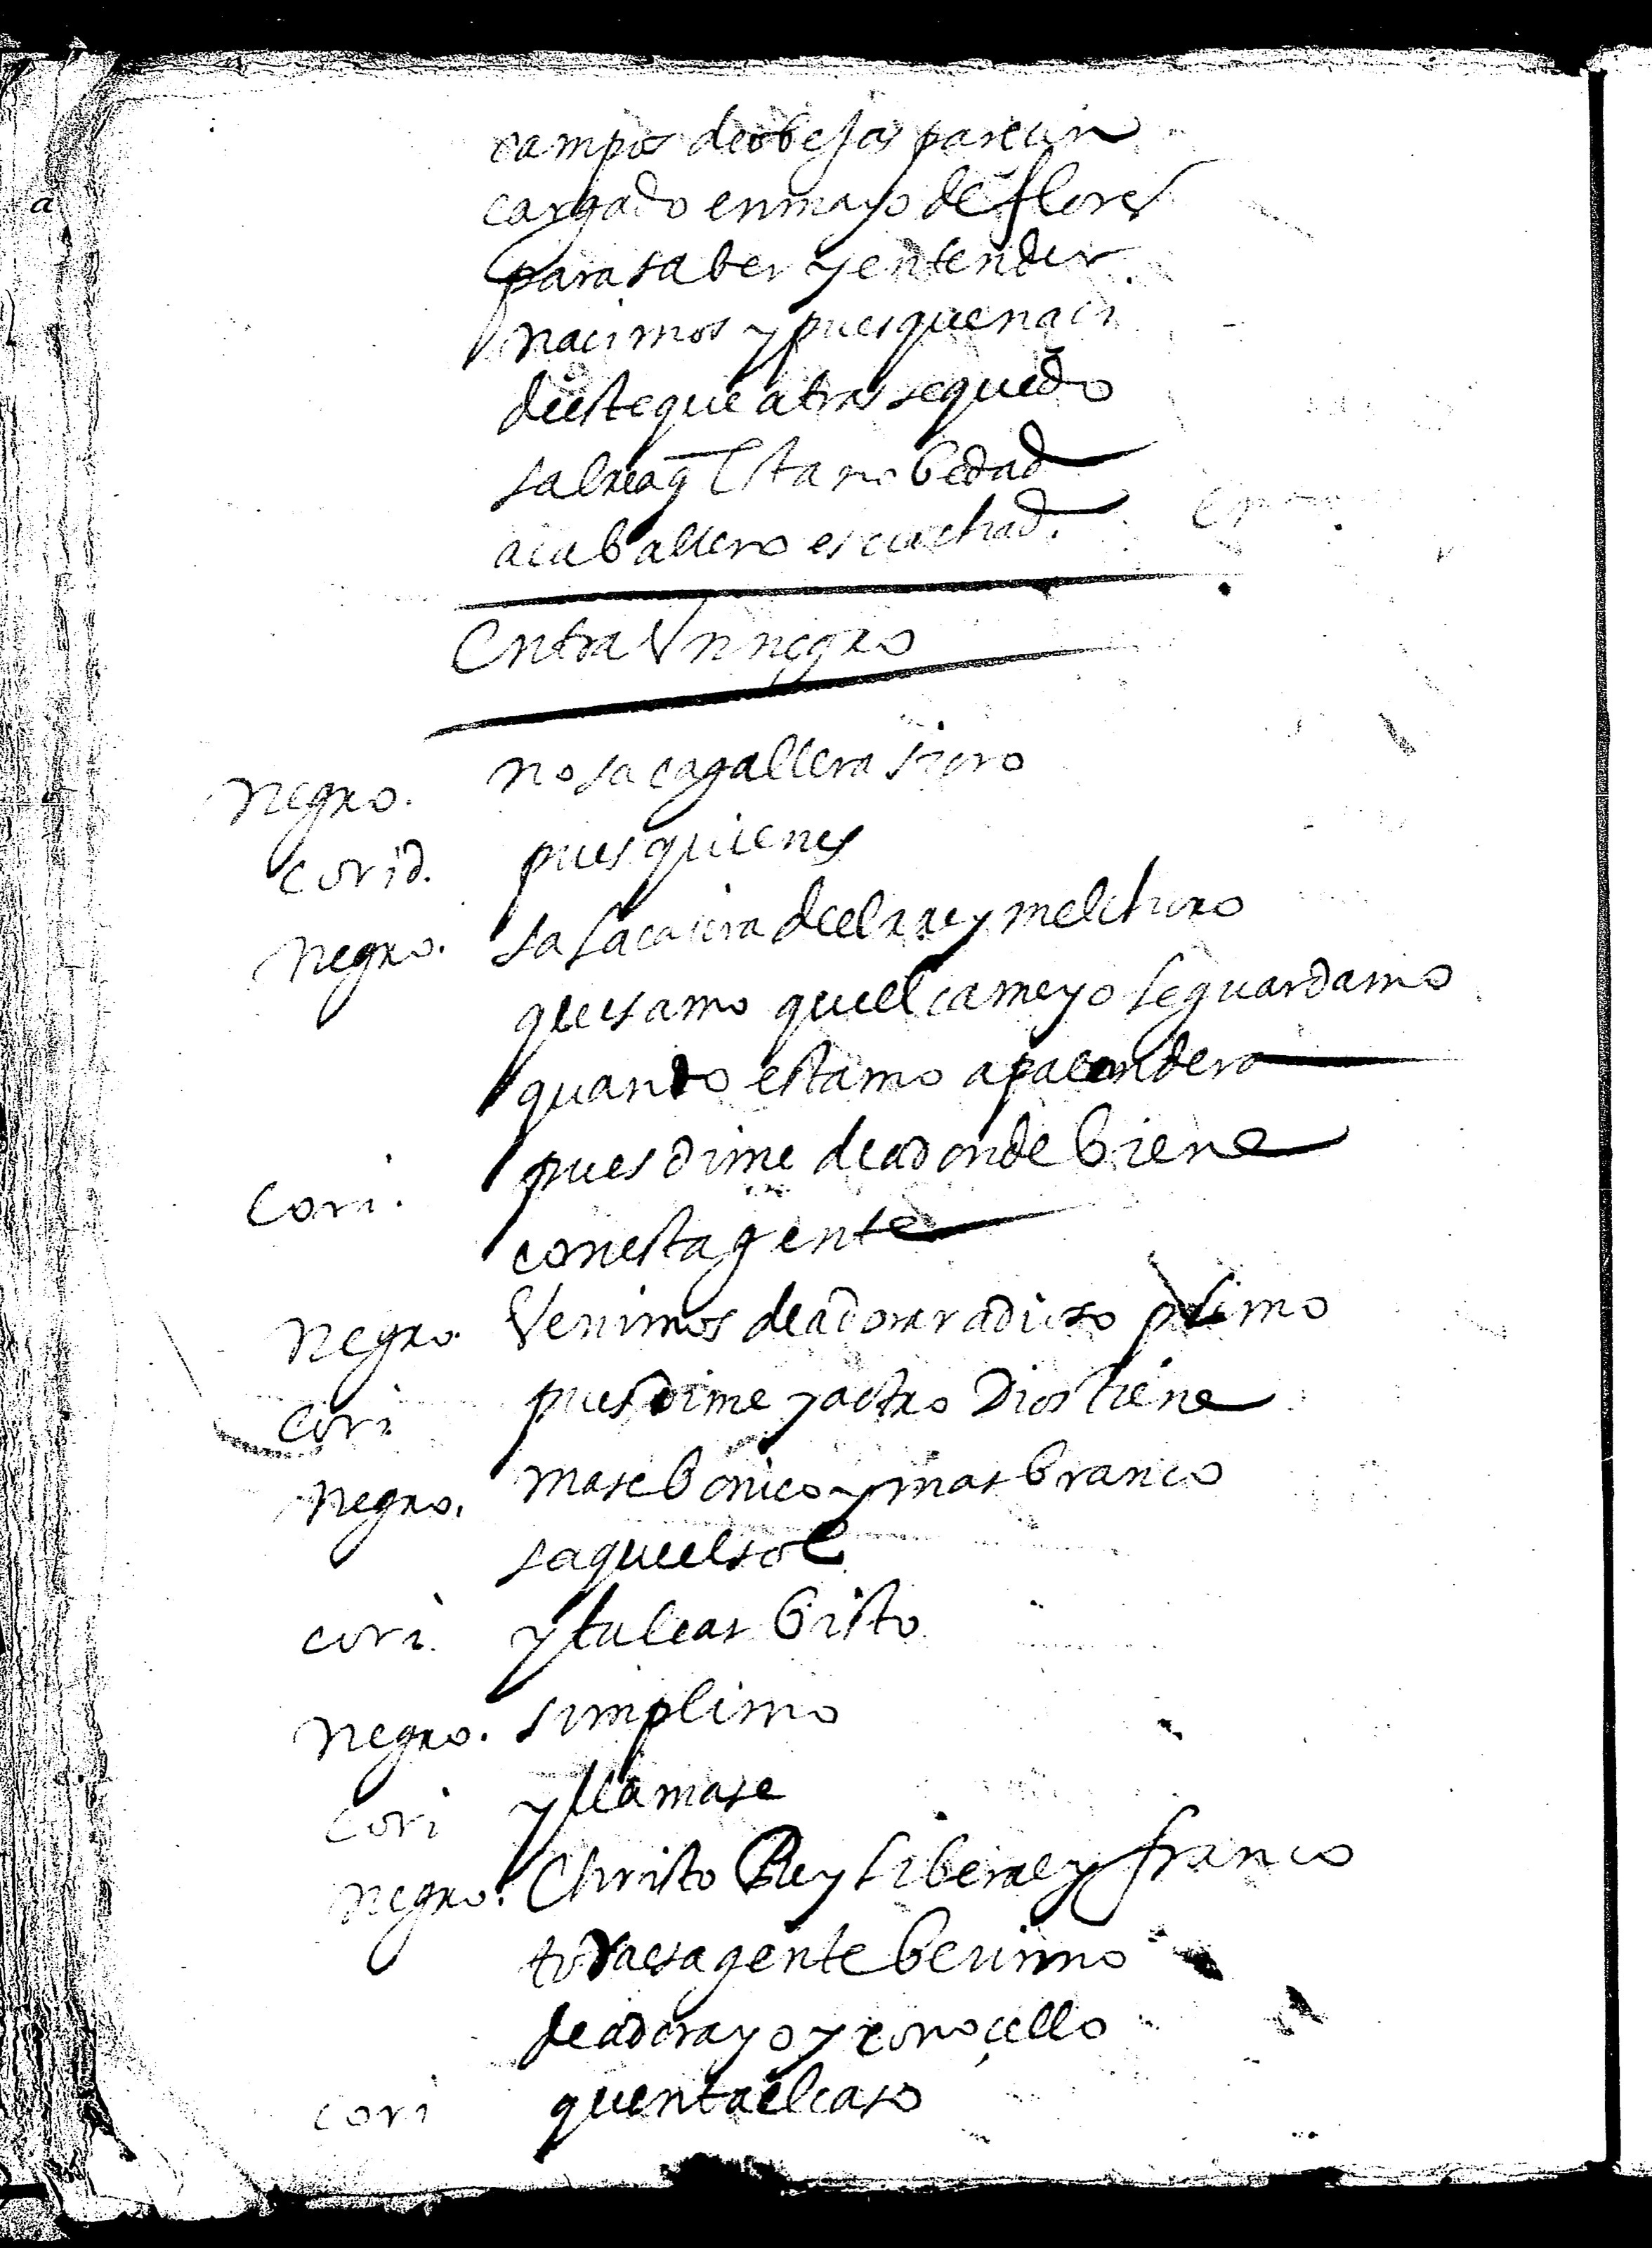 campos de obejas parecin
cargado en mayo de flores
para saber y entender
nacimos y pues que naci
deeste que atras se quedo
salrea q̃ esta nobedad
a caballero escuchad.
Entra Vn negro
negro. no sa cagallera sioro
corid. pues quien es
negro. sa lacaiera de el rrey melchoro
que samo quel cameyo le guardamo
quando estamo
cori. pues dime de adonde biene
con esta gente
negro. Venimos de adorar a dioso primo
cori pues dime y a otro Dios tiene
negro. mase bonico y mas branco
sa que el sol
cori. y tu leas bisto
negro. simplimo
cori y llamase
negro. Christo Rey liberal y franco
toda esa gente benimo
de adorayo y conoçello
cori quenta el caso